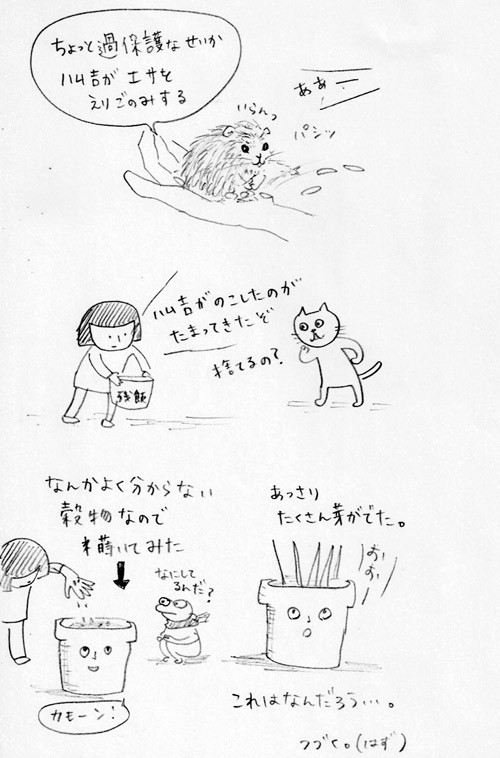 ちょっと過保護なせいか
ハム吉がエサを
えりごのみする
あぁ…
いらんっ
パシッ
ハム吉がのこしたのが
たまってきたぞ
捨てるの?
残飯
なんかよく分からない
穀物なので
蒔いてみた
なにして
るんだ?
カモーン!
あっさり
たくさん芽がでた。
おぉ
おぉ
これはなんだろう…。
つづく。(はず)